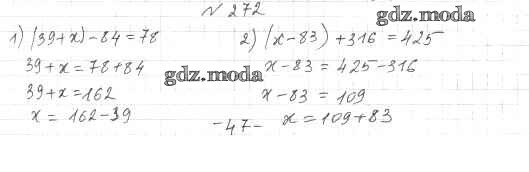 № 272
gdz.moda
1) (39+x)-84=78
39+x=78+84
39+x=162
x= 162-39
gdz.moda
2) (x-83)+316=425
x-83=425-316
x-83=109
x=109+83
-47-